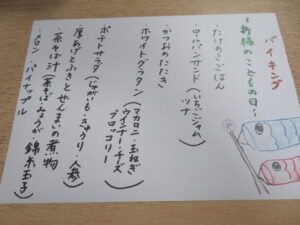 バイキング
〜新緑のこどもの日〜
・ロールパンサンド(いちごジャム
ツナ
たけのこごはん
かつおのたたき
・ホワイトグラタン(マカロニ・玉ねぎ
ウインナー・チーズ
ブロッコリー
・ポテトサラダ(じゃがいも・きゅうり・人参)
・厚あげとふきとぜんまいの煮物
・茶そば汁(茶そば・みょうが・錦糸玉子)
・メロン・パイナップル